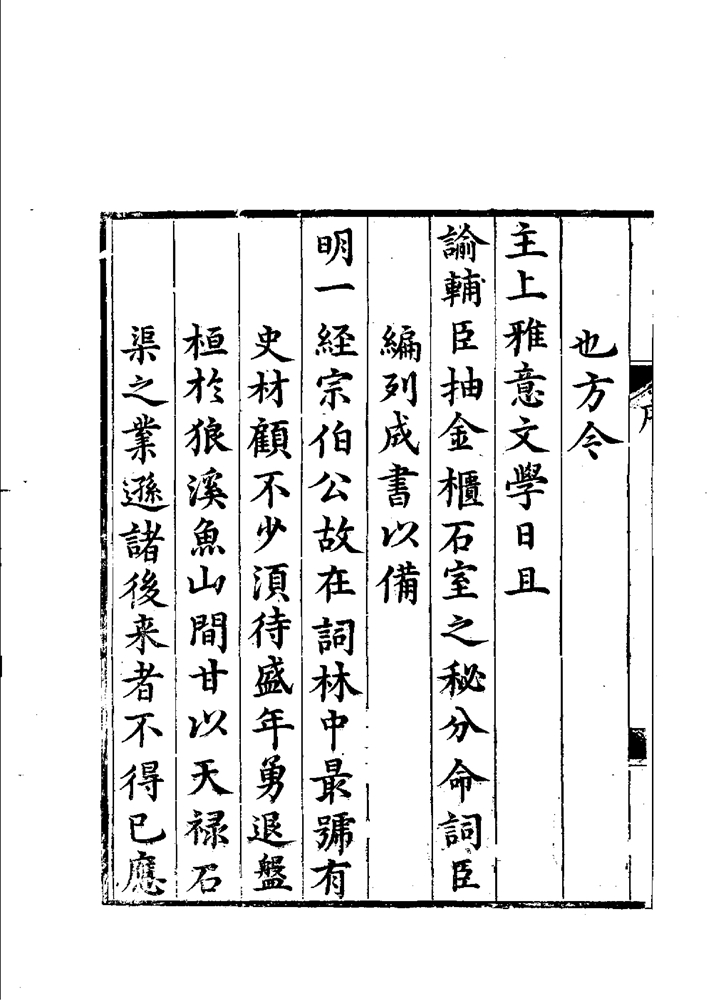 也方今
主上雅意文學日且
諭輔臣抽金櫃石室之秘分命詞臣
編列成書以備
明一經宗伯公故在詞林中最號有
史材顧不少湏待盛年勇退盤
桓於狼溪魚山間甘以天禄石
渠之業遜諸後来者不得已應